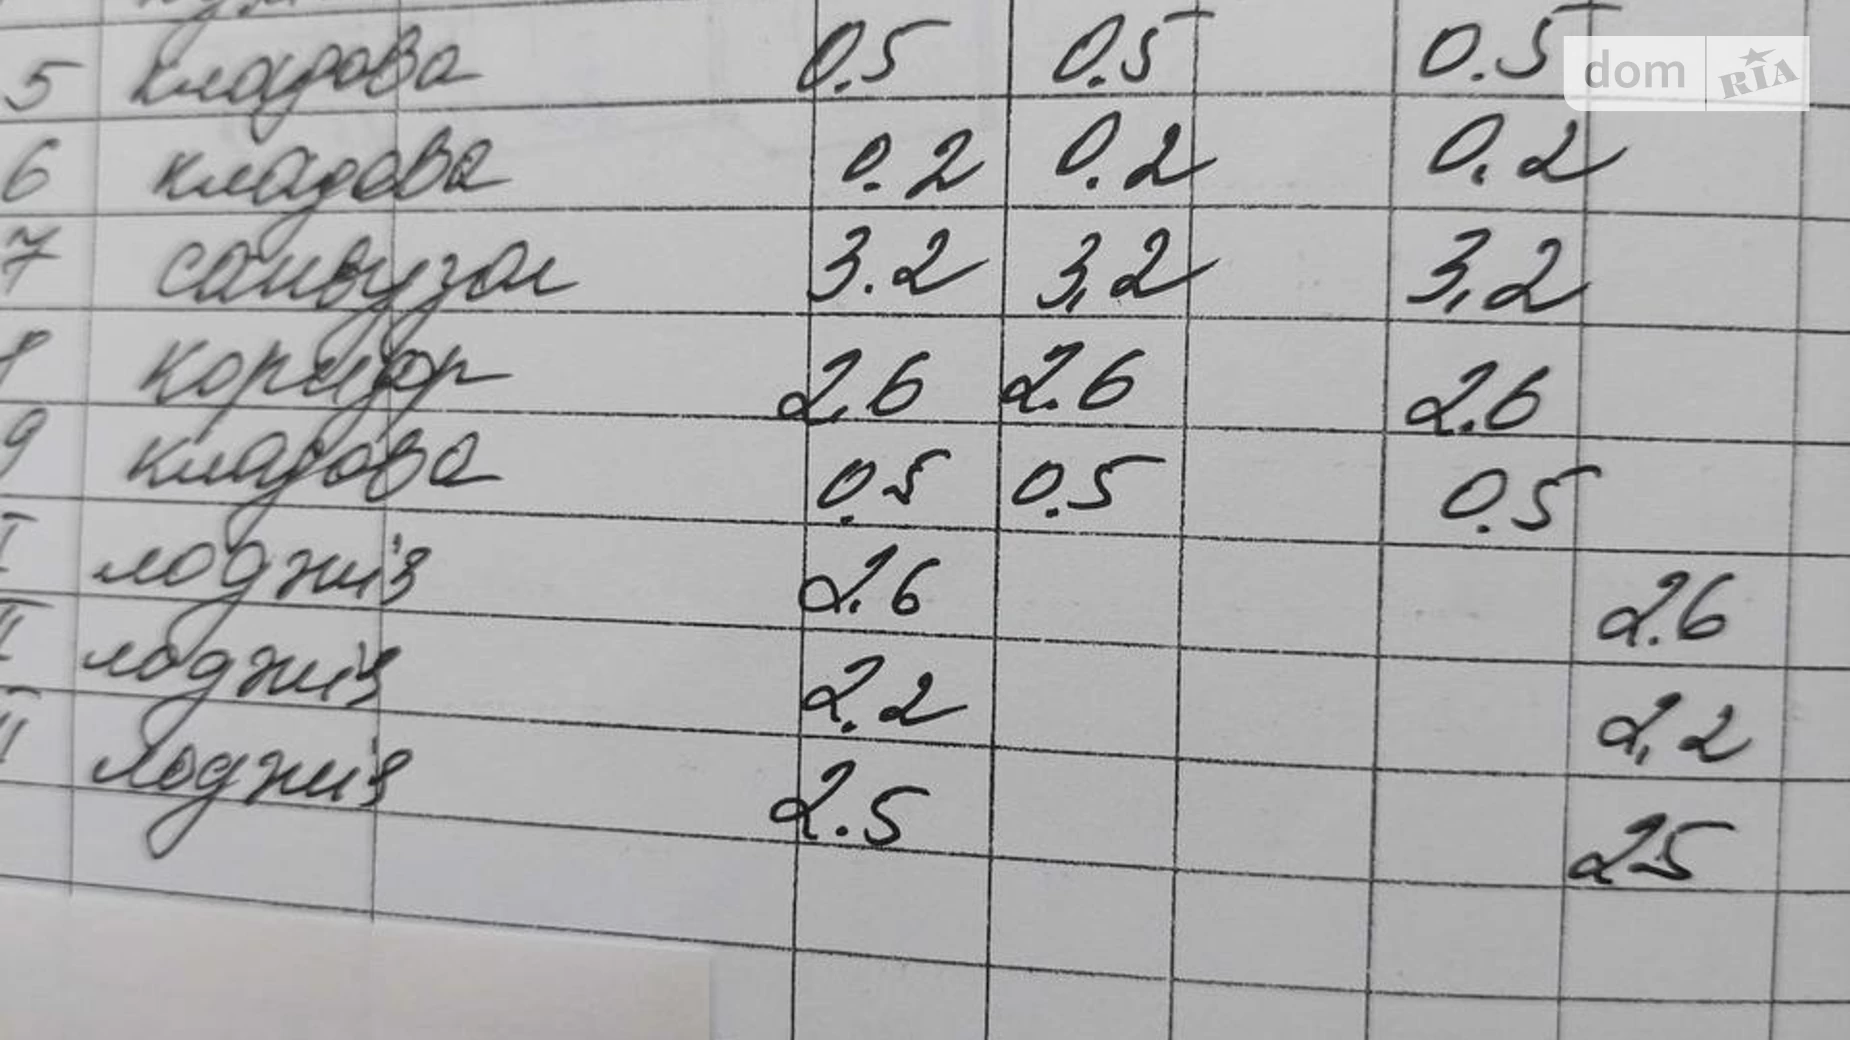 5 кладова 0.5 0.5 0.5
dom RIA
6 кладова 0.2 0.2 0.2
7 санвузол 3.2 3,2 3,2
8 коридор 2.6 2.6 2.6
9 кладова 0.5 0.5 0.5
I лоджія 2.6 2.6
II лоджія 2.2 2,2
лоджія 2.5 2.5